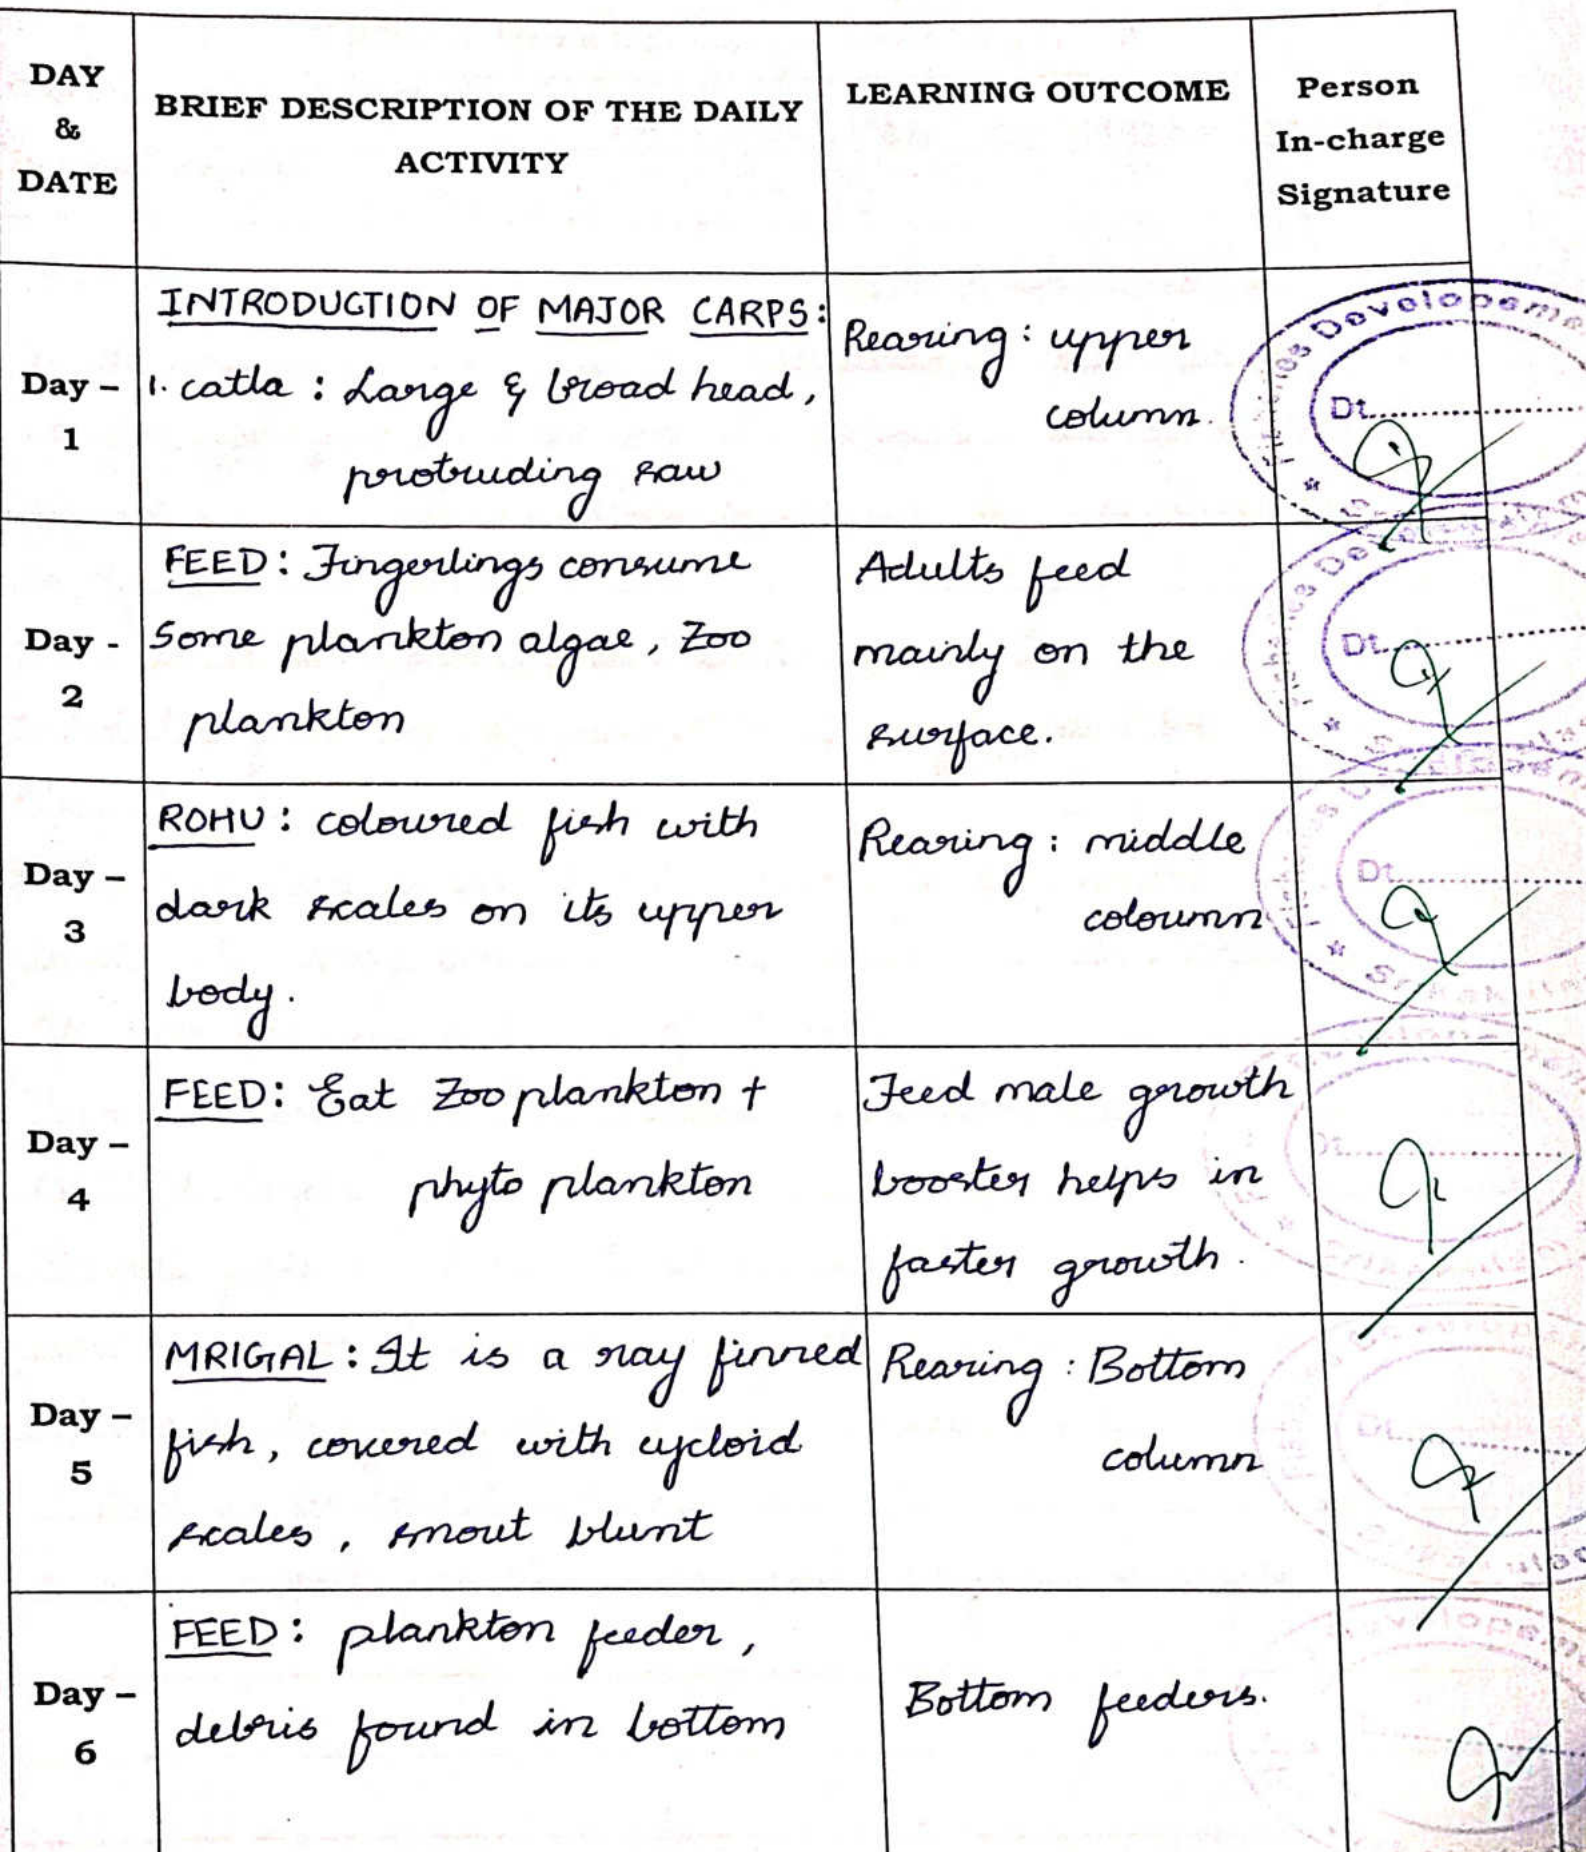 DAY
&
DATE
BRIEF DESCRIPTION OF THE DAILY
ACTIVITY
LEARNING OUTCOME
Person
In-charge
Signature
Day –
1
INTRODUCTION OF MAJOR CARPS:
1. catla : Large & broad head,
protruding saw
Rearing : upper
column.
Dt.
Day -
2
FEED : Fingerlings consume
Some plankton algae, Zoo
plankton
Adults feed
mainly on the
surface.
Dt.
Day –
3
ROHU : coloured fish with
dark scales on its upper
body.
Rearing : middle
coloumn
Dt.
Day –
4
FEED: Eat Zoo plankton +
phyto plankton
Feed male growth
booster helps in
faster growth.
Dt.
Day –
5
MRIGAL : It is a ray finned
fish, covered with cycloid
scales, smout blunt
Rearing : Bottom
column
Dt.
Day –
6
FEED : plankton feeder,
debris found in bottom
Bottom feeders.